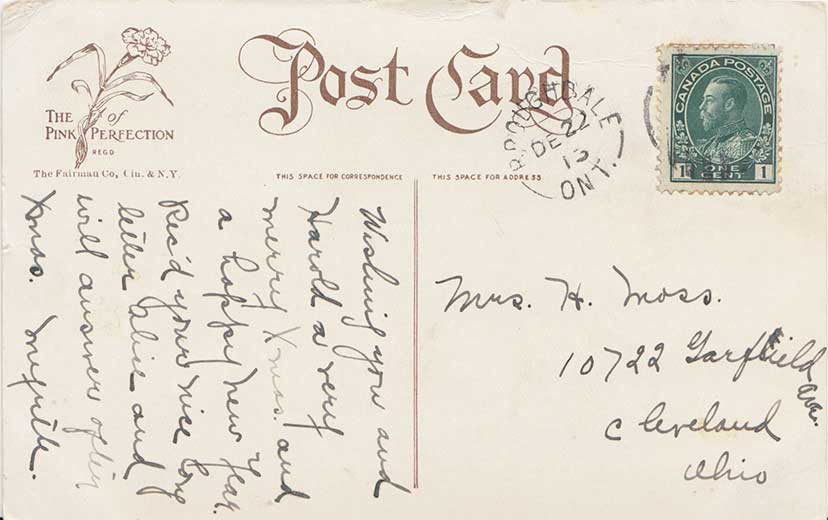 THE of
PINK PERFECTION
REGD
The Fairman Co, Cin. & N.Y.
Post Card
THIS SPACE FOR CORRESPONDENCE
THIS SPACE FOR ADDRESS
BROUGHDALE
DE 22
13
ONT.
CANADA POSTAGE
1 ONE CENT 1
Wishing you and
Harold a very
merry Xmas. and
a happy new year.
Rec'd your nice long
letter Alice and
will answer after
Xmas. Myrtle.
Mrs. H. Moss.
10722 Garfield Ave.
Cleveland
Ohio